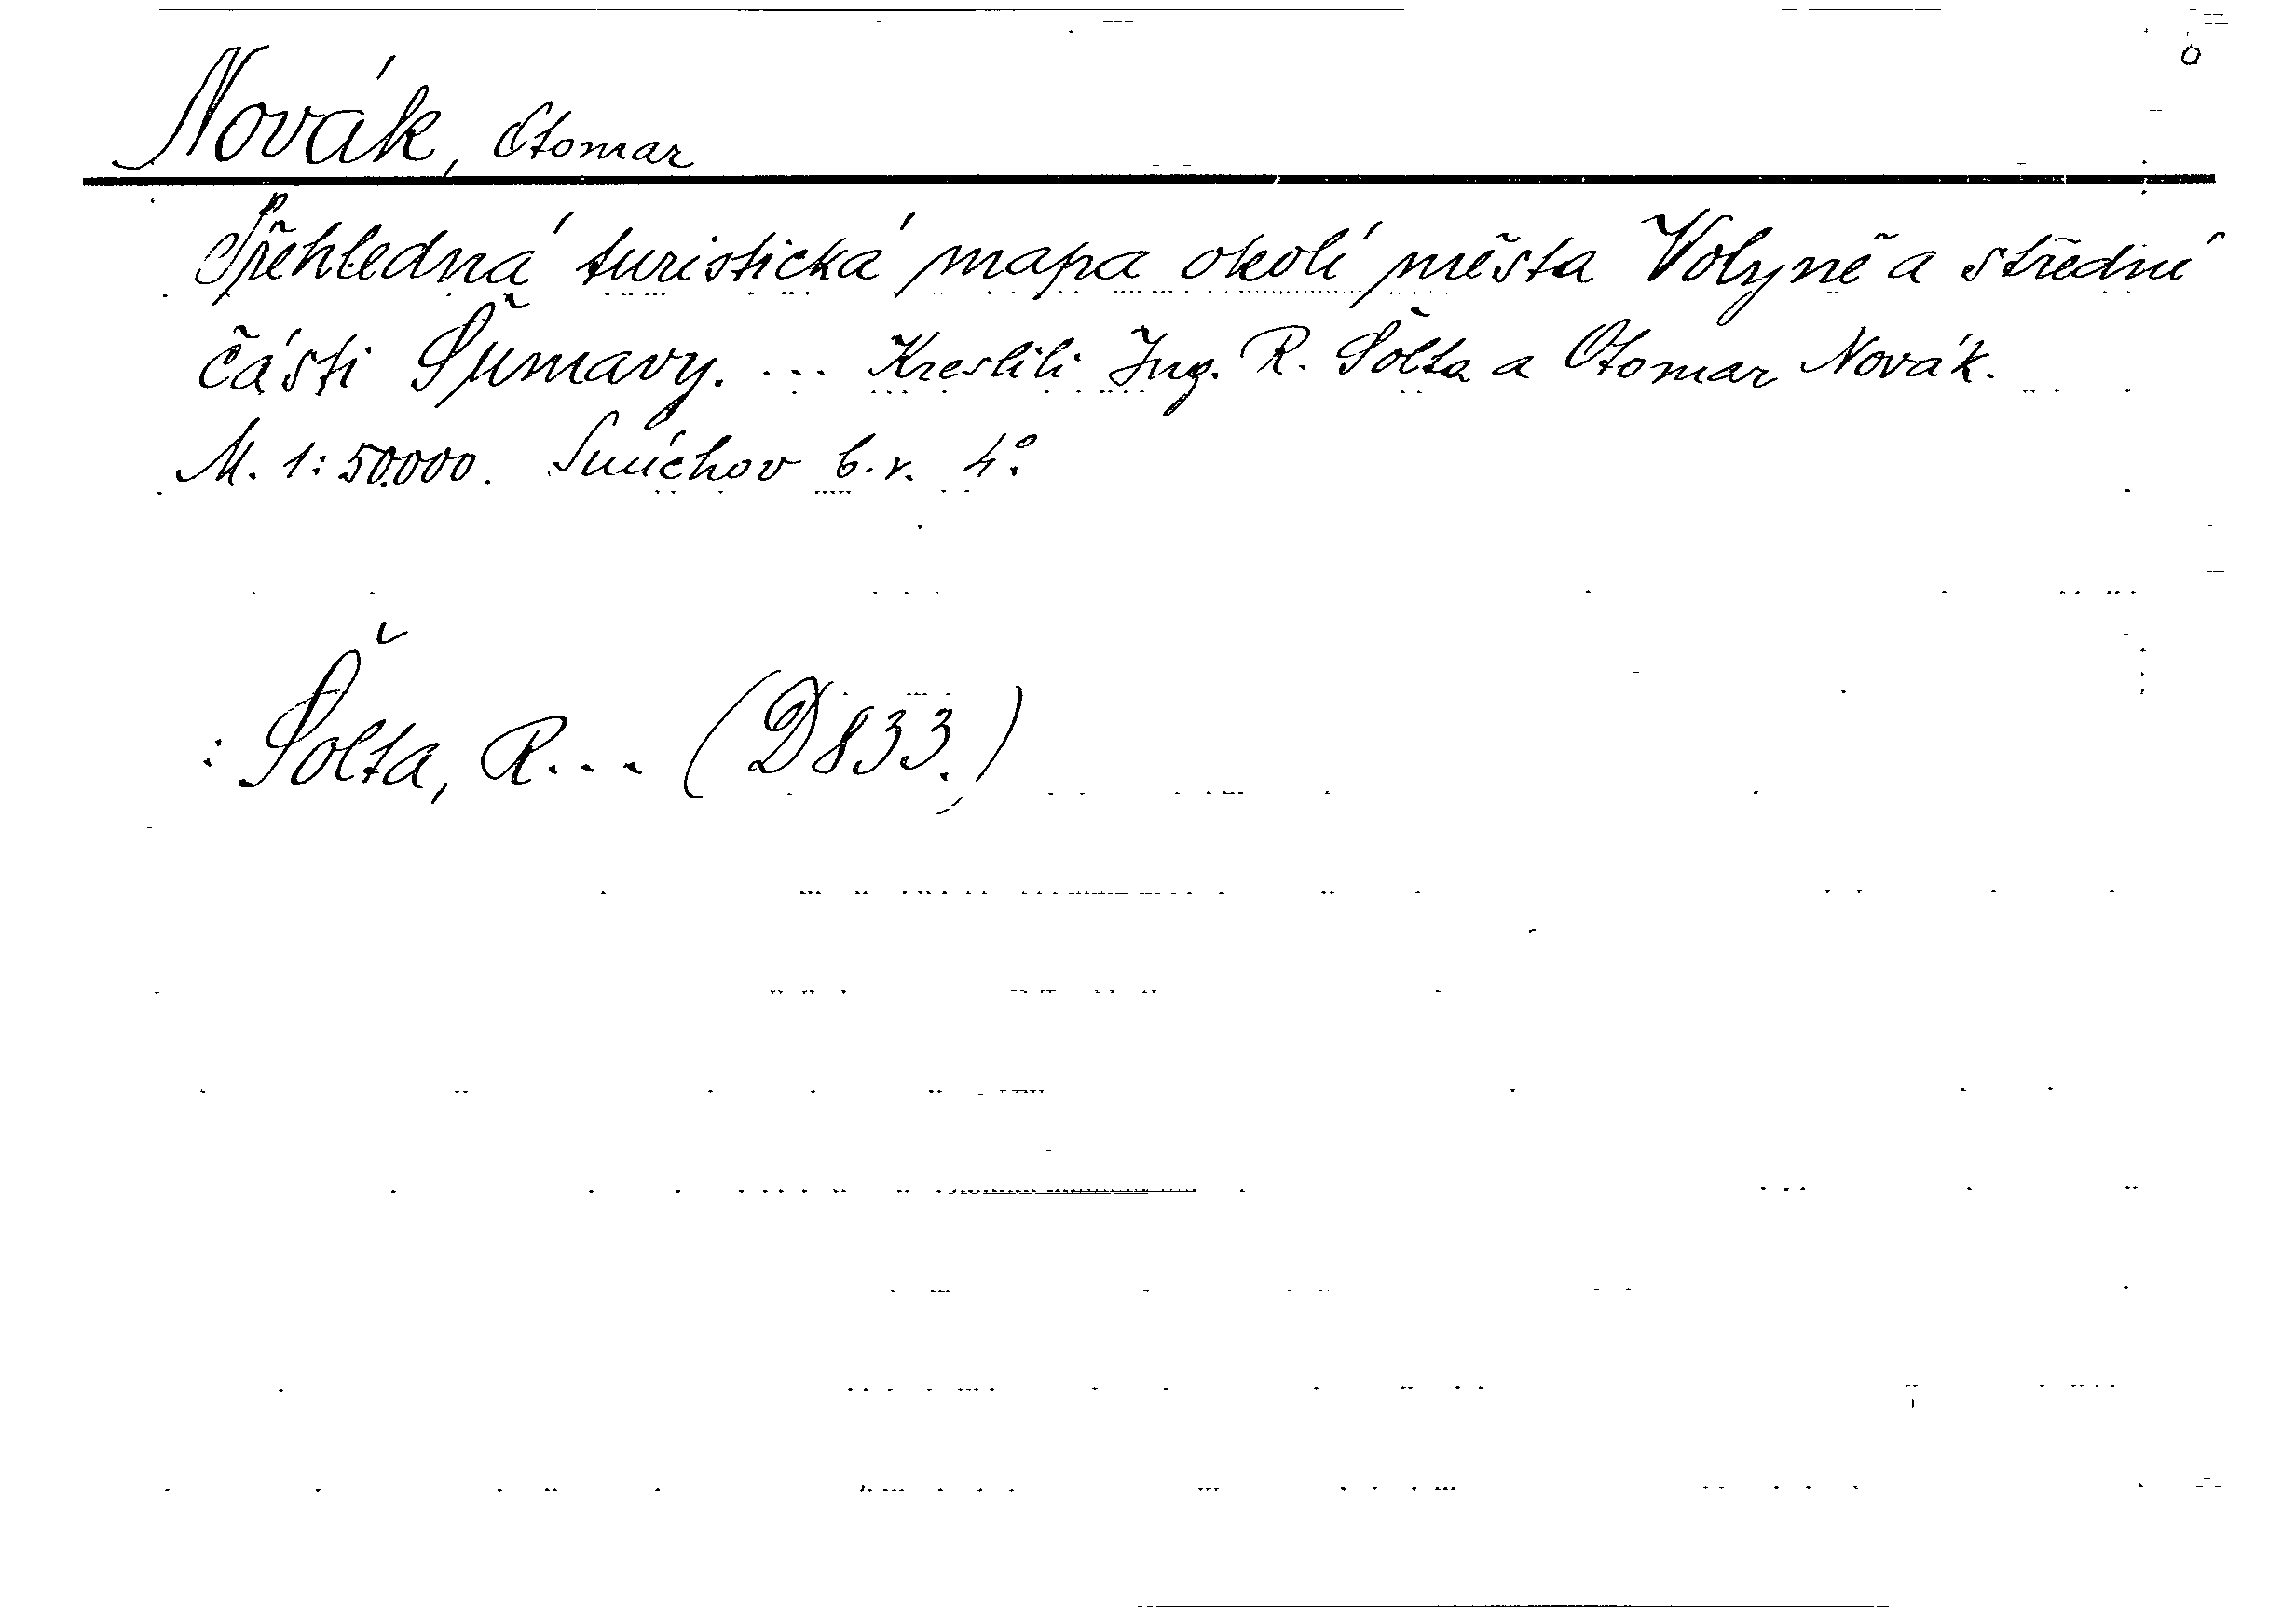 Novák, Otomar
Přehledná turistická mapa okolí města Volyně a střední
části Šumavy. ... Kreslili Ing. R. Šolta a Otomar Novák.
M. 1:50.000. Smíchov b.r. 4°.
: Šolta, R... (D833.)